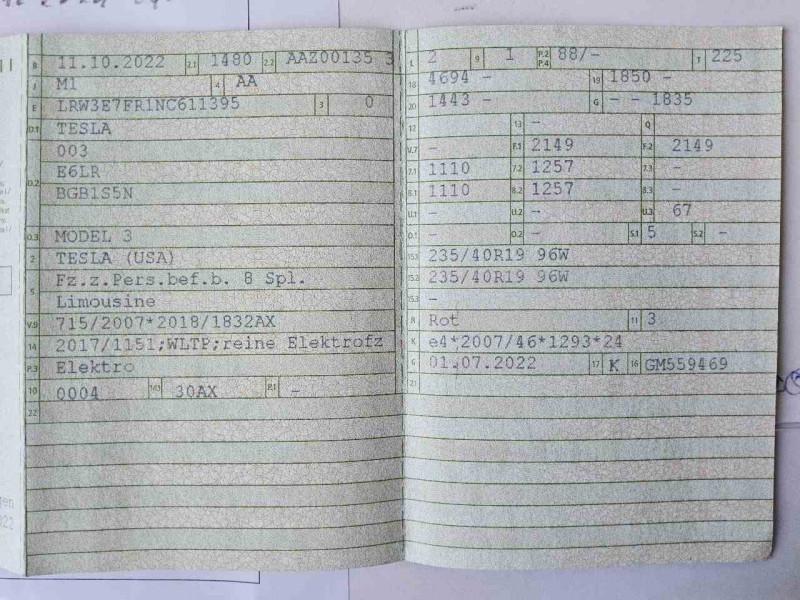 B 11.10.2022 2.1 1480 2.2 AAZ00135 3
J M1 4 AA
E LRW3E7FR1NC611395 3 0
D.1 TESLA
003
D.2 E6LR
BGB1S5N
D.3 MODEL 3
2 TESLA (USA)
5 Fz.z.Pers.bef.b. 8 Spl.
Limousine
V.9 715/2007*2018/1832AX
14 2017/1151;WLTP;reine Elektrofz
P.3 Elektro
10 0004 14.1 30AX P.1 -
22
L 2 9 1 P.2 P.4 88/- T 225
18 4694 - 19 1850 -
20 1443 - G - - 1835
12 13 - Q
V.7 - F.1 2149 F.2 2149
7.1 1110 7.2 1257 7.3 -
8.1 1110 8.2 1257 8.3 -
U.1 - U.2 - U.3 67
O.1 - O.2 - S.1 5 S.2 -
15.1 235/40R19 96W
15.2 235/40R19 96W
15.3 -
R Rot 11 3
K e4*2007/46*1293*24
6 01.07.2022 17 K 16 GM559469
21